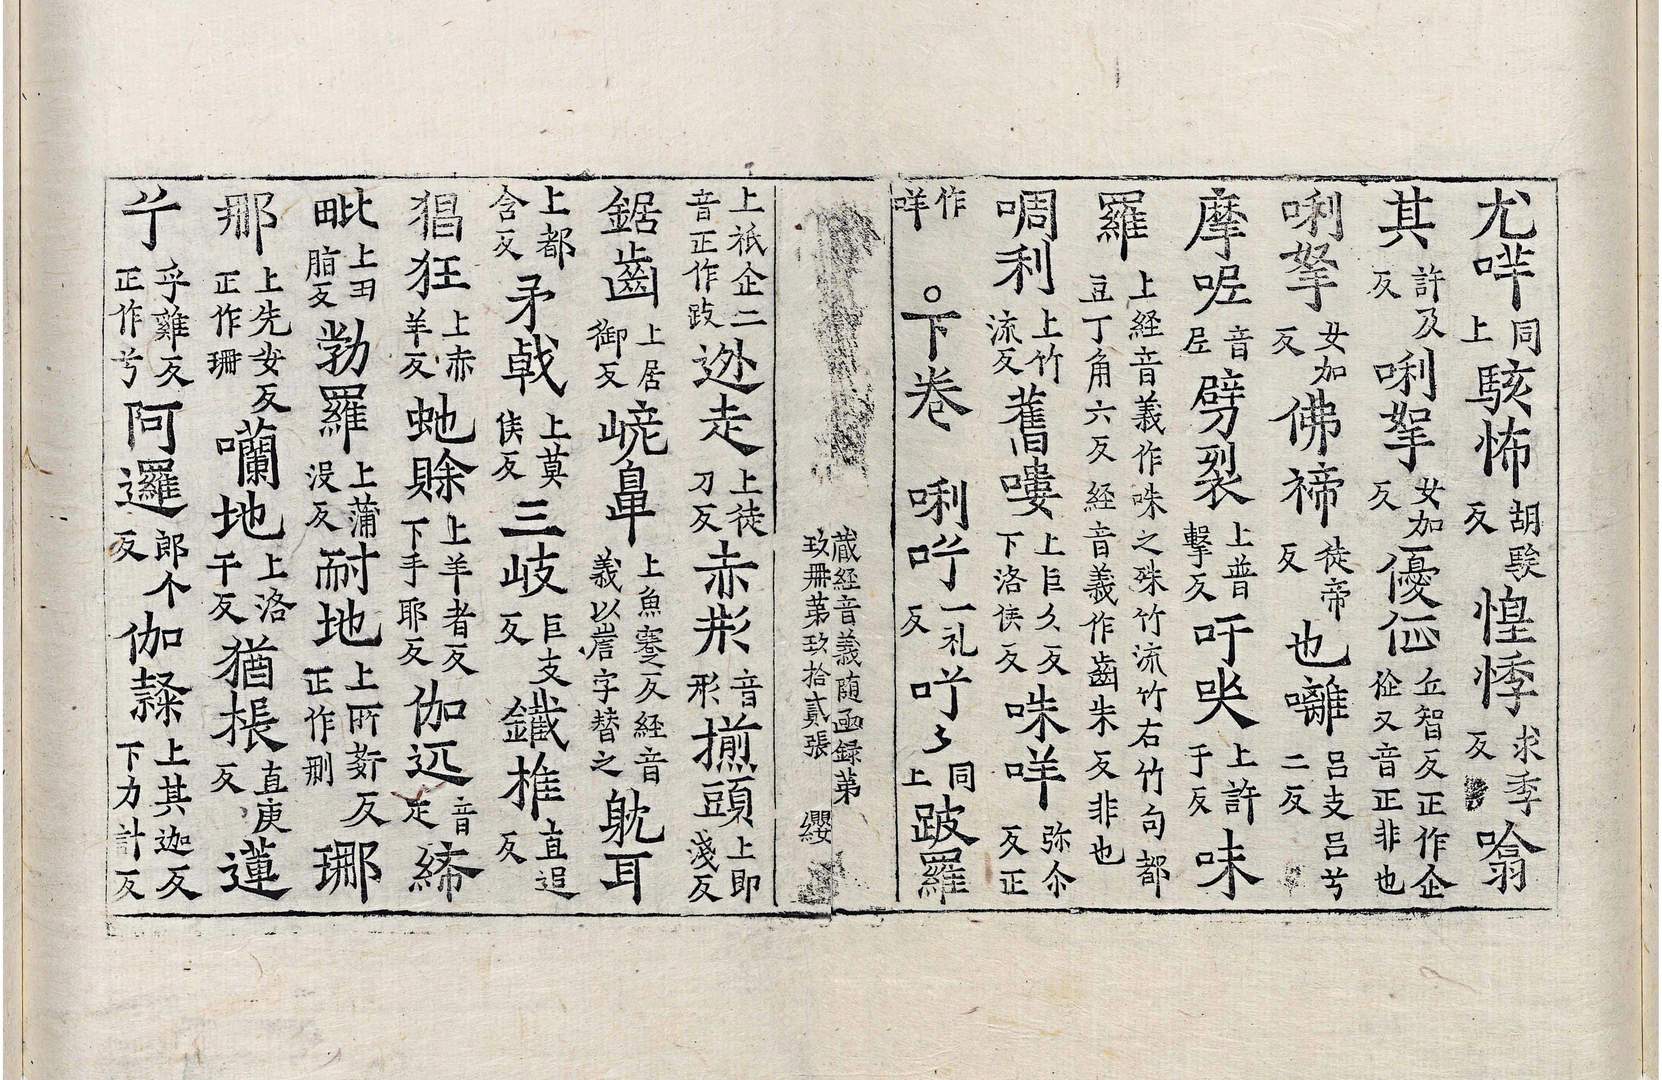 尤吽同上駭怖胡騃反惶悸求季反噏
其許及反唎拏女加反優𠈇丘智反正作企企又音正非也
唎拏女加反佛禘徒帝反也𡅏呂支呂兮二反
摩㖠音𡰱劈裂上普擊反吁㕭上許于反味
羅上経音義作咮之殊竹流竹右竹句都豆丁角六反経音義作齒朱反非也
啁利上竹流反舊嘍上巨久反下洛侯反咮咩弥尒反正
作哶○下卷唎吘一礼反吘〻同上跛羅
蔵経音義随函録第
玖冊第玖拾貳張 纓
上祇企二音正作跂迯走上徒刀反赤𣬈音形揃頭上即淺反
鋸齒上居御反㟢鼻上魚蹇反経音義以䧹字替之躭耳
上都含反矛戟上莫侯反三岐巨支反鐵椎直追反
猖狂上赤羊反虵賖上羊者反下手耶反伽迊音定締
毗上田脂反勃羅上蒲没反耐地上所薪反正作刪瑯
那上先安反正作珊囒地上洛干反猶棖直庚反蓮
兮乎雞反正作兮阿邏郎个反伽隸上其迦反下力計反